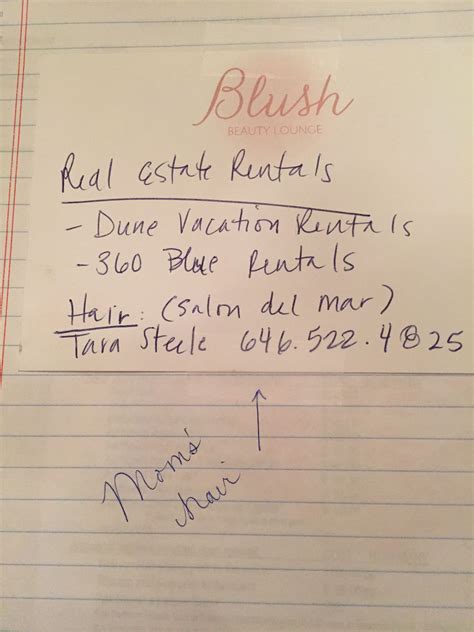 Blush
BEAUTY LOUNGE
Real Estate Rentals
- Dune Vacation Rentals
- 360 Blue Rentals
Hair: (Salon del mar)
Tara Steele 646.522.4825
Mom's
hair